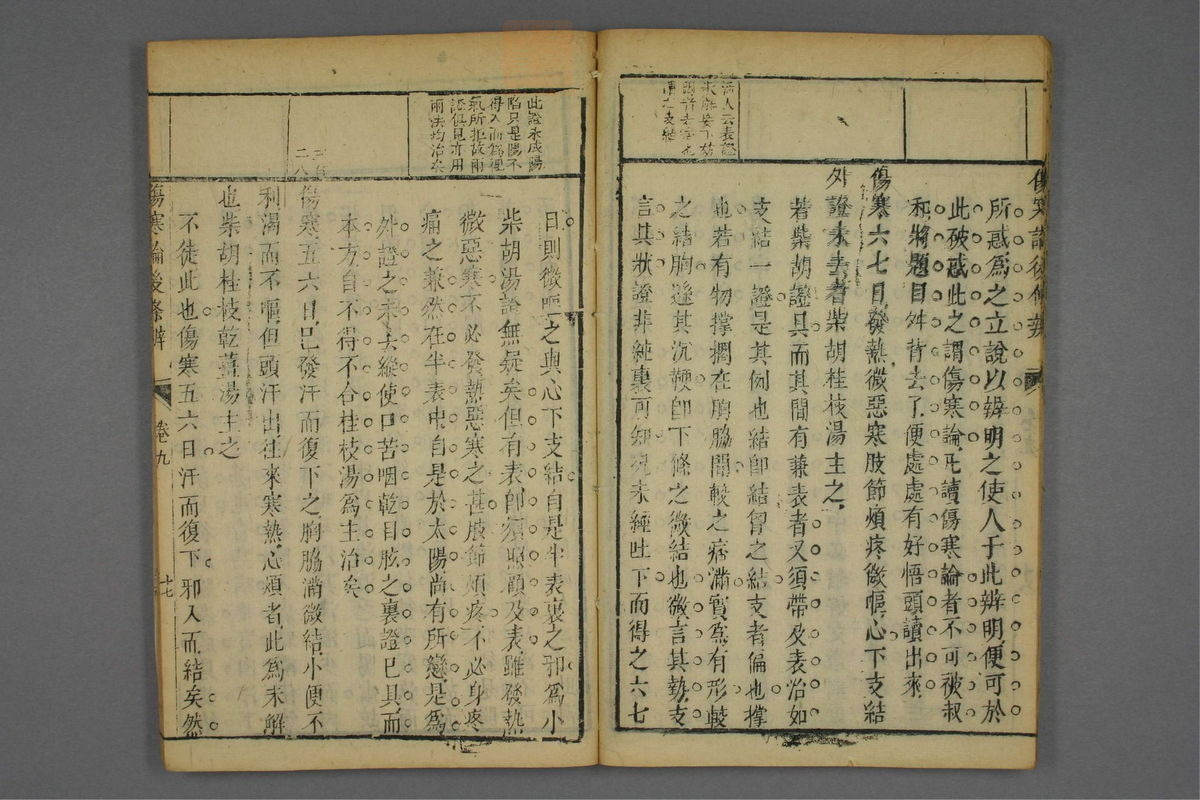 傷寒論後條辨
所惑爲之立說以辨明之使人于此辨明便可於
此破惑此之謂傷寒論凡讀傷寒論者不可被叔
和將題目舛背去了便處處有好悟頭讀出來
傷寒六七日發熱微惡寒肢節煩疼微嘔心下支結
外證未去者柴胡桂枝湯主之
若柴胡證具而其間有兼表者又須帶及表治如
支結一證是其例也結卽結胷之結支者偏也撐
也若有物撐擱在胸脇間較之痞滿實爲有形較
之結胸遜其沉鞕卽下條之微結也微言其勢支
言其狀證非純裏可知況未經吐下而得之六七
活人云表證
謂之支結
此證未成陽
陷只是陽不
得入而爲裡
氣所拒故兩
證俱見亦用
兩法均治矣
日則微嘔之與心下支結自是半表裏之邪爲小
柴胡湯證無疑矣但有表卽須照顧及表雖發熱
微惡寒不必發熱惡寒之甚肢節煩疼不必身疼
痛之兼然在半表中自是於太陽尚有所戀是爲
外證之未去縱使口苦咽乾目眩之裏證已具而
本方自不得不合桂枝湯爲主治矣
傷寒五六日已發汗而復下之胸脇滿微結小便不
利渴而不嘔但頭汗出往來寒熱心煩者此爲未解
也柴胡桂枝乾薑湯主之
不徒此也傷寒五六日汗而復下邪入而結矣然
傷寒論後條辨
卷九
十七